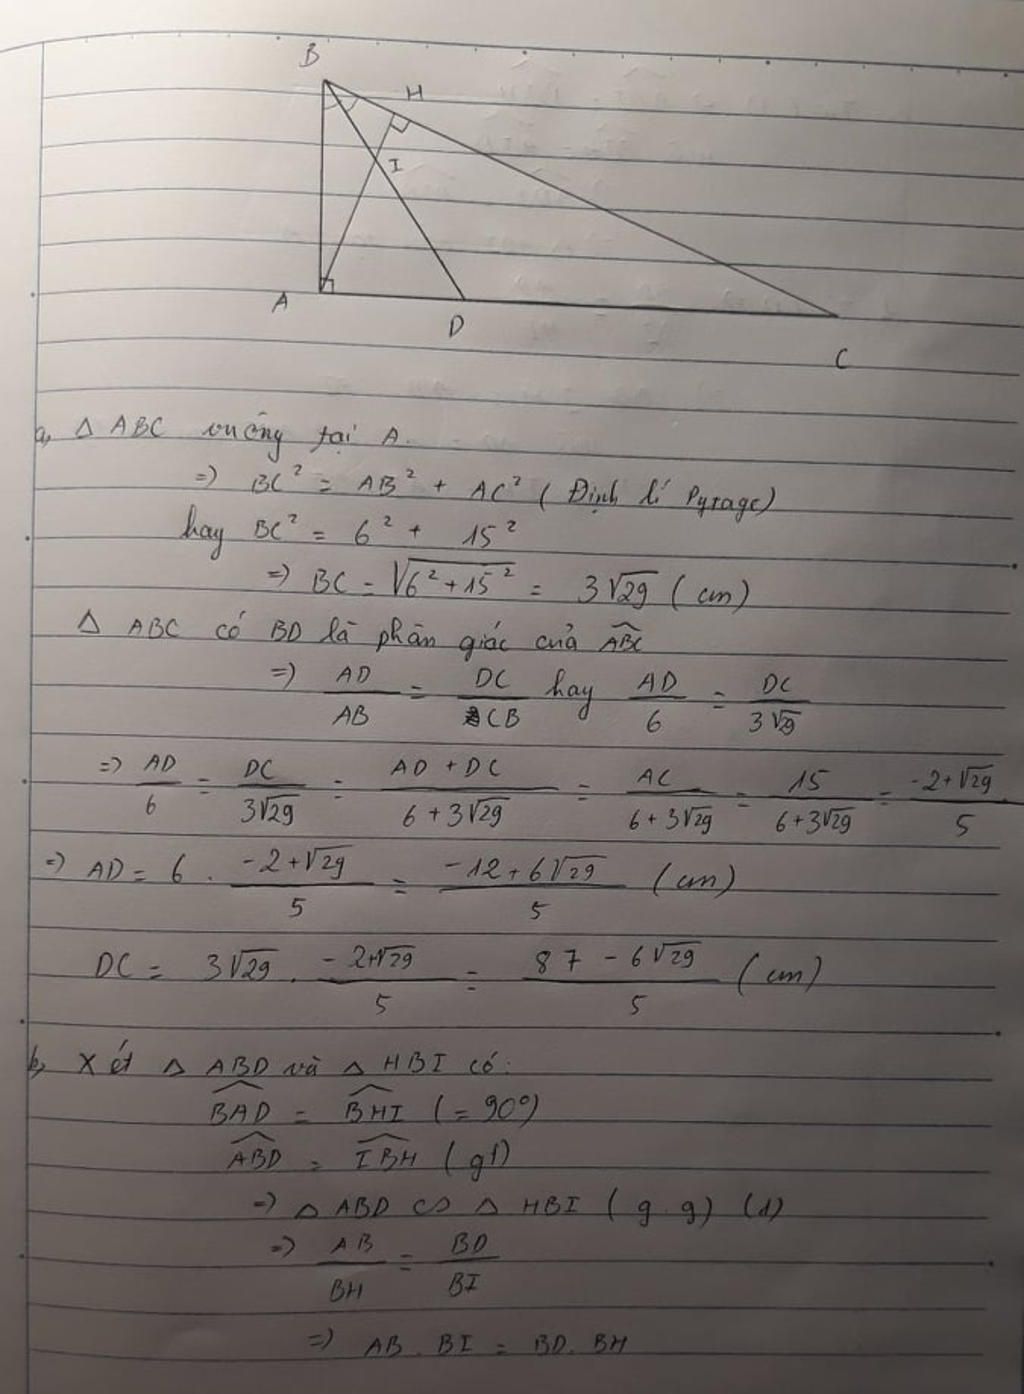 B
H
I
A
D
C
a, Δ ABC vuông tại A.
=> BC² = AB² + AC² ( Định lí Pytago)
hay BC² = 6² + 15²
=> BC = √(6² + 15²) = 3√29 ( cm)
Δ ABC có BD là phân giác của ∠ABC
=> AD/AB = DC/CB hay AD/6 = DC/3√29
=> AD/6 = DC/3√29 = (AD + DC)/(6 + 3√29) = AC/(6 + 3√29) = 15/(6 + 3√29) = (-2 + √29)/5
=> AD = 6 . (-2 + √29)/5 = (-12 + 6√29)/5 (cm)
DC = 3√29 . (-2 + √29)/5 = (87 - 6√29)/5 (cm)
b, Xét Δ ABD và Δ HBI có:
∠BAD = ∠BHI (= 90°)
∠ABD = ∠IBH (gt)
=> Δ ABD ∽ Δ HBI ( g.g) (1)
=> AB/BH = BD/BI
=> AB . BI = BD . BH